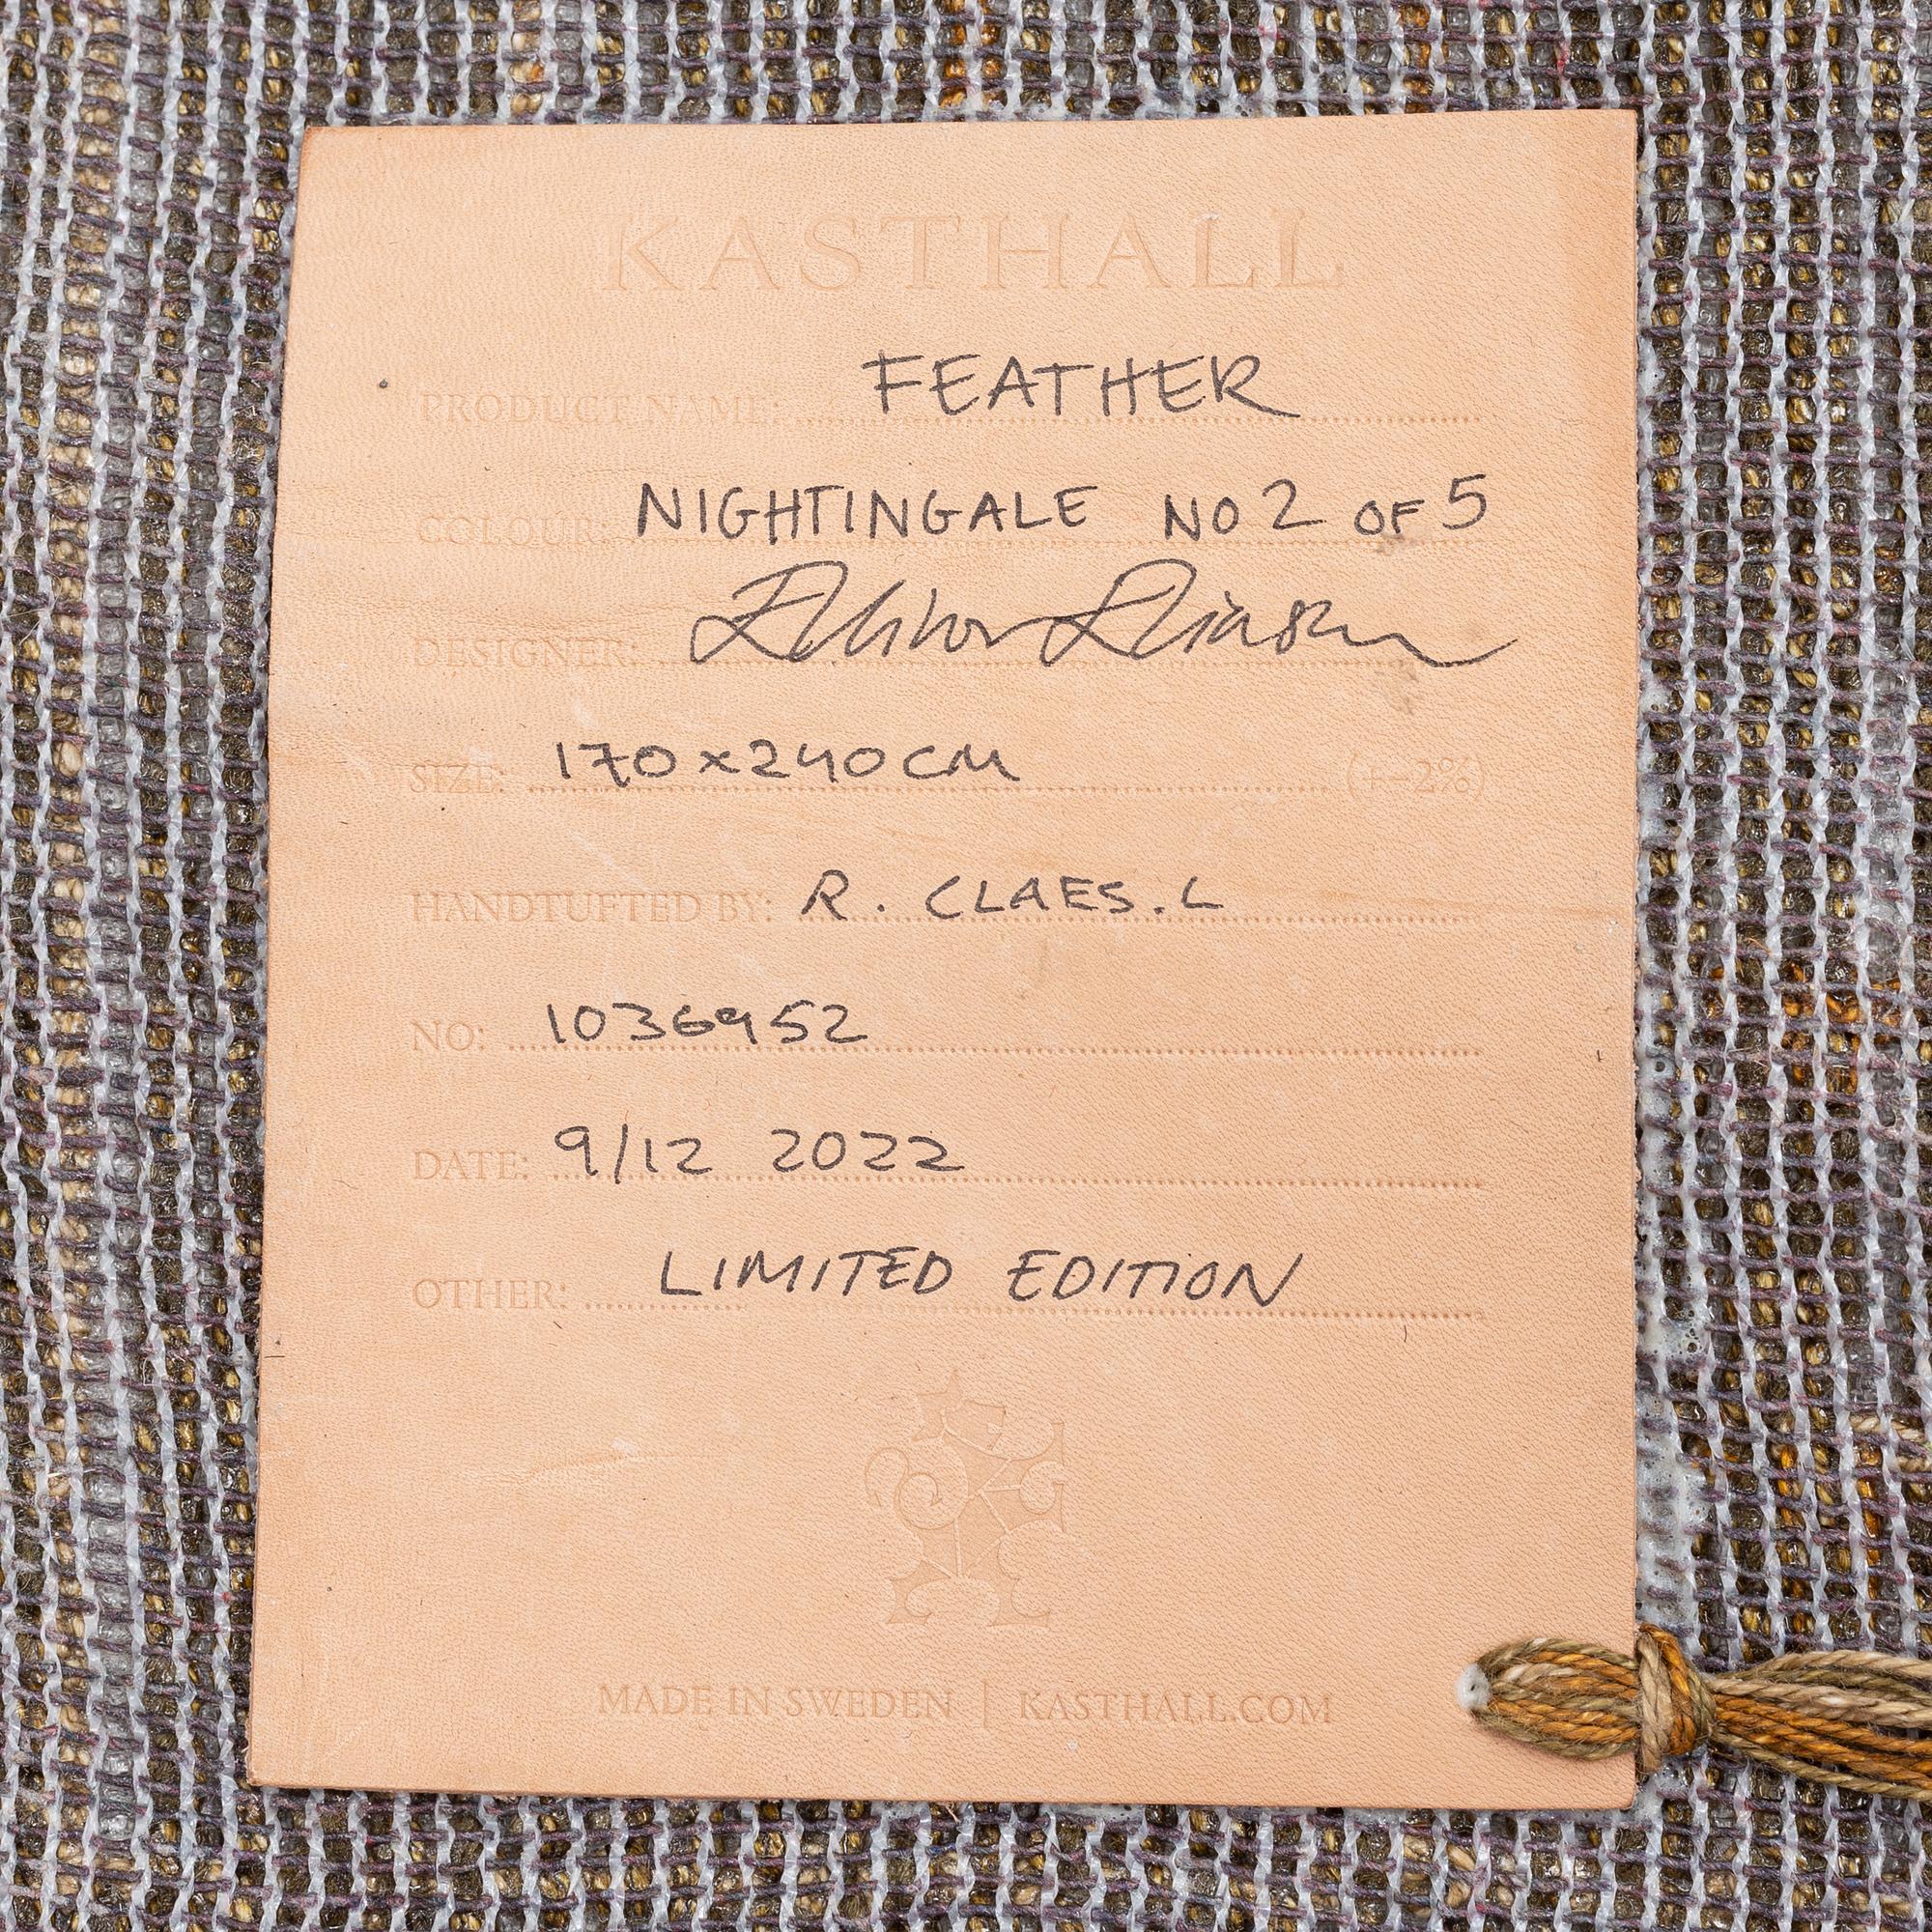 KASTHALL
PRODUCT NAME: FEATHER
COLOUR: NIGHTINGALE NO 2 OF 5
DESIGNER:
SIZE: 170x240CM (+–2%)
HANDTUFTED BY: R. CLAES.L
NO: 1036952
DATE: 9/12 2022
OTHER: LIMITED EDITION
MADE IN SWEDEN | KASTHALL.COM